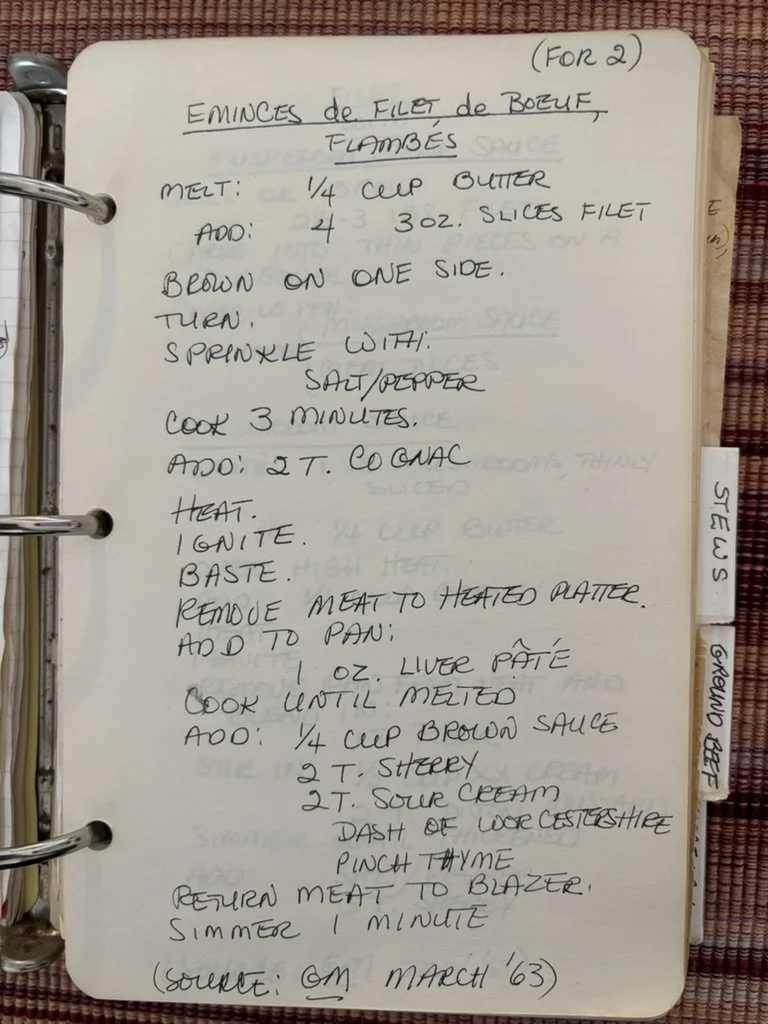 (FOR 2)
EMINCES de FILET de BOEUF,
FLAMBÉS
MELT: 1/4 CUP BUTTER
ADD: 4 3 OZ. SLICES FILET
BROWN ON ONE SIDE.
TURN.
SPRINKLE WITH:
SALT/PEPPER
COOK 3 MINUTES.
ADD: 2 T. COGNAC
HEAT.
IGNITE.
BASTE.
REMOVE MEAT TO HEATED PLATTER.
ADD TO PAN:
1 OZ. LIVER PÂTÉ
COOK UNTIL MELTED
ADD: 1/4 CUP BROWN SAUCE
2 T. SHERRY
2 T. SOUR CREAM
DASH OF WORCESTERSHIRE
PINCH THYME
RETURN MEAT TO BLAZER.
SIMMER 1 MINUTE
(SOURCE: GM MARCH '63)
STEWS
GROUND BEEF